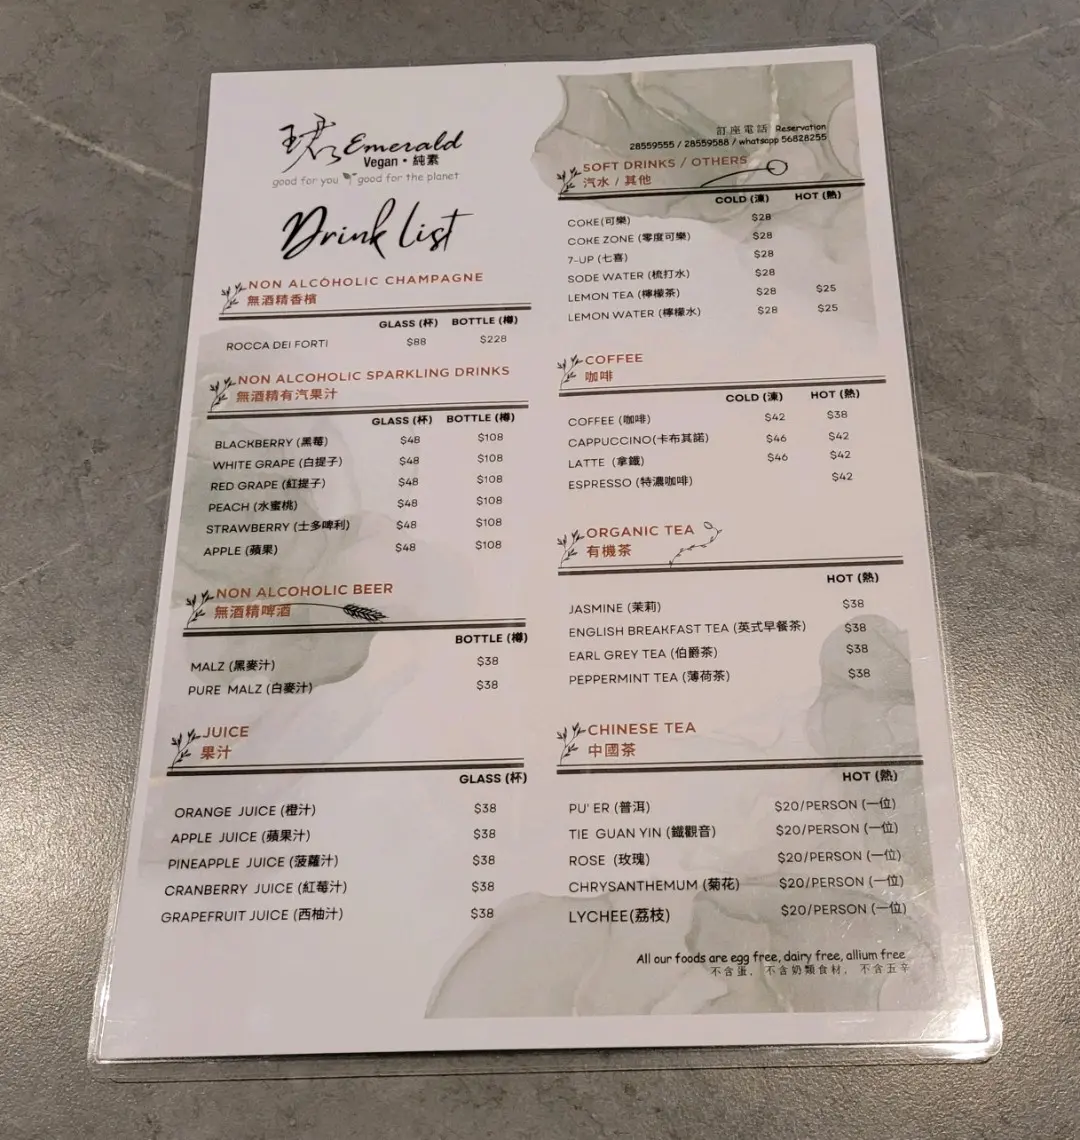 珺 Emerald
Vegan • 純素
good for you good for the planet
Drink list
NON ALCOHOLIC CHAMPAGNE
無酒精香檳
GLASS (杯) BOTTLE (樽)
ROCCA DEI FORTI $88 $228
NON ALCOHOLIC SPARKLING DRINKS
無酒精有汽果汁
GLASS (杯) BOTTLE (樽)
BLACKBERRY (黑莓) $48 $108
WHITE GRAPE (白提子) $48 $108
RED GRAPE (紅提子) $48 $108
PEACH (水蜜桃) $48 $108
STRAWBERRY (士多啤利) $48 $108
APPLE (蘋果) $48 $108
NON ALCOHOLIC BEER
無酒精啤酒
BOTTLE (樽)
MALZ (黑麥汁) $38
PURE MALZ (白麥汁) $38
JUICE
果汁
GLASS (杯)
ORANGE JUICE (橙汁) $38
APPLE JUICE (蘋果汁) $38
PINEAPPLE JUICE (菠蘿汁) $38
CRANBERRY JUICE (紅莓汁) $38
GRAPEFRUIT JUICE (西柚汁) $38
訂座電話 Reservation
28559555 / 28559588 / whatsapp 56828255
SOFT DRINKS / OTHERS
汽水 / 其他
COLD (凍) HOT (熱)
COKE(可樂) $28
COKE ZONE (零度可樂) $28
7-UP (七喜) $28
SODE WATER (梳打水) $28
LEMON TEA (檸檬茶) $28 $25
LEMON WATER (檸檬水) $28 $25
COFFEE
咖啡
COLD (凍) HOT (熱)
COFFEE (咖啡) $42 $38
CAPPUCCINO(卡布其諾) $46 $42
LATTE (拿鐵) $46 $42
ESPRESSO (特濃咖啡) $42
ORGANIC TEA
有機茶
HOT (熱)
JASMINE (茉莉) $38
ENGLISH BREAKFAST TEA (英式早餐茶) $38
EARL GREY TEA (伯爵茶) $38
PEPPERMINT TEA (薄荷茶) $38
CHINESE TEA
中國茶
HOT (熱)
PU' ER (普洱) $20/PERSON (一位)
TIE GUAN YIN (鐵觀音) $20/PERSON (一位)
ROSE (玫瑰) $20/PERSON (一位)
CHRYSANTHEMUM (菊花) $20/PERSON (一位)
LYCHEE(荔枝) $20/PERSON (一位)
All our foods are egg free, dairy free, allium free
不含蛋, 不含奶類食材, 不含五辛